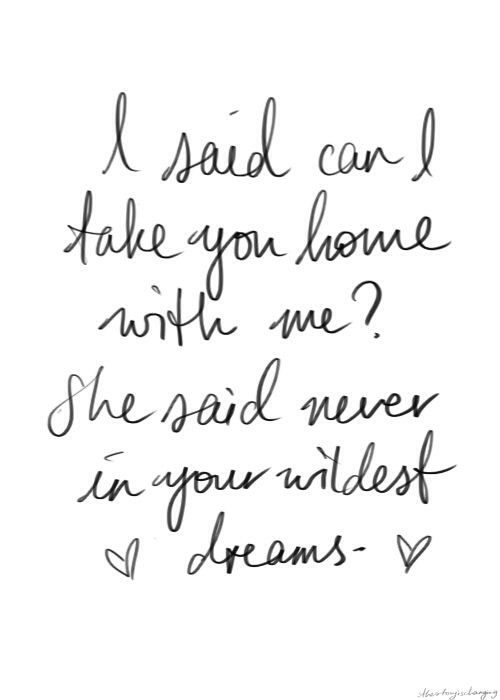 I said can I
take you home
with me?
She said never
in your wildest
dreams-
thestoryischanging